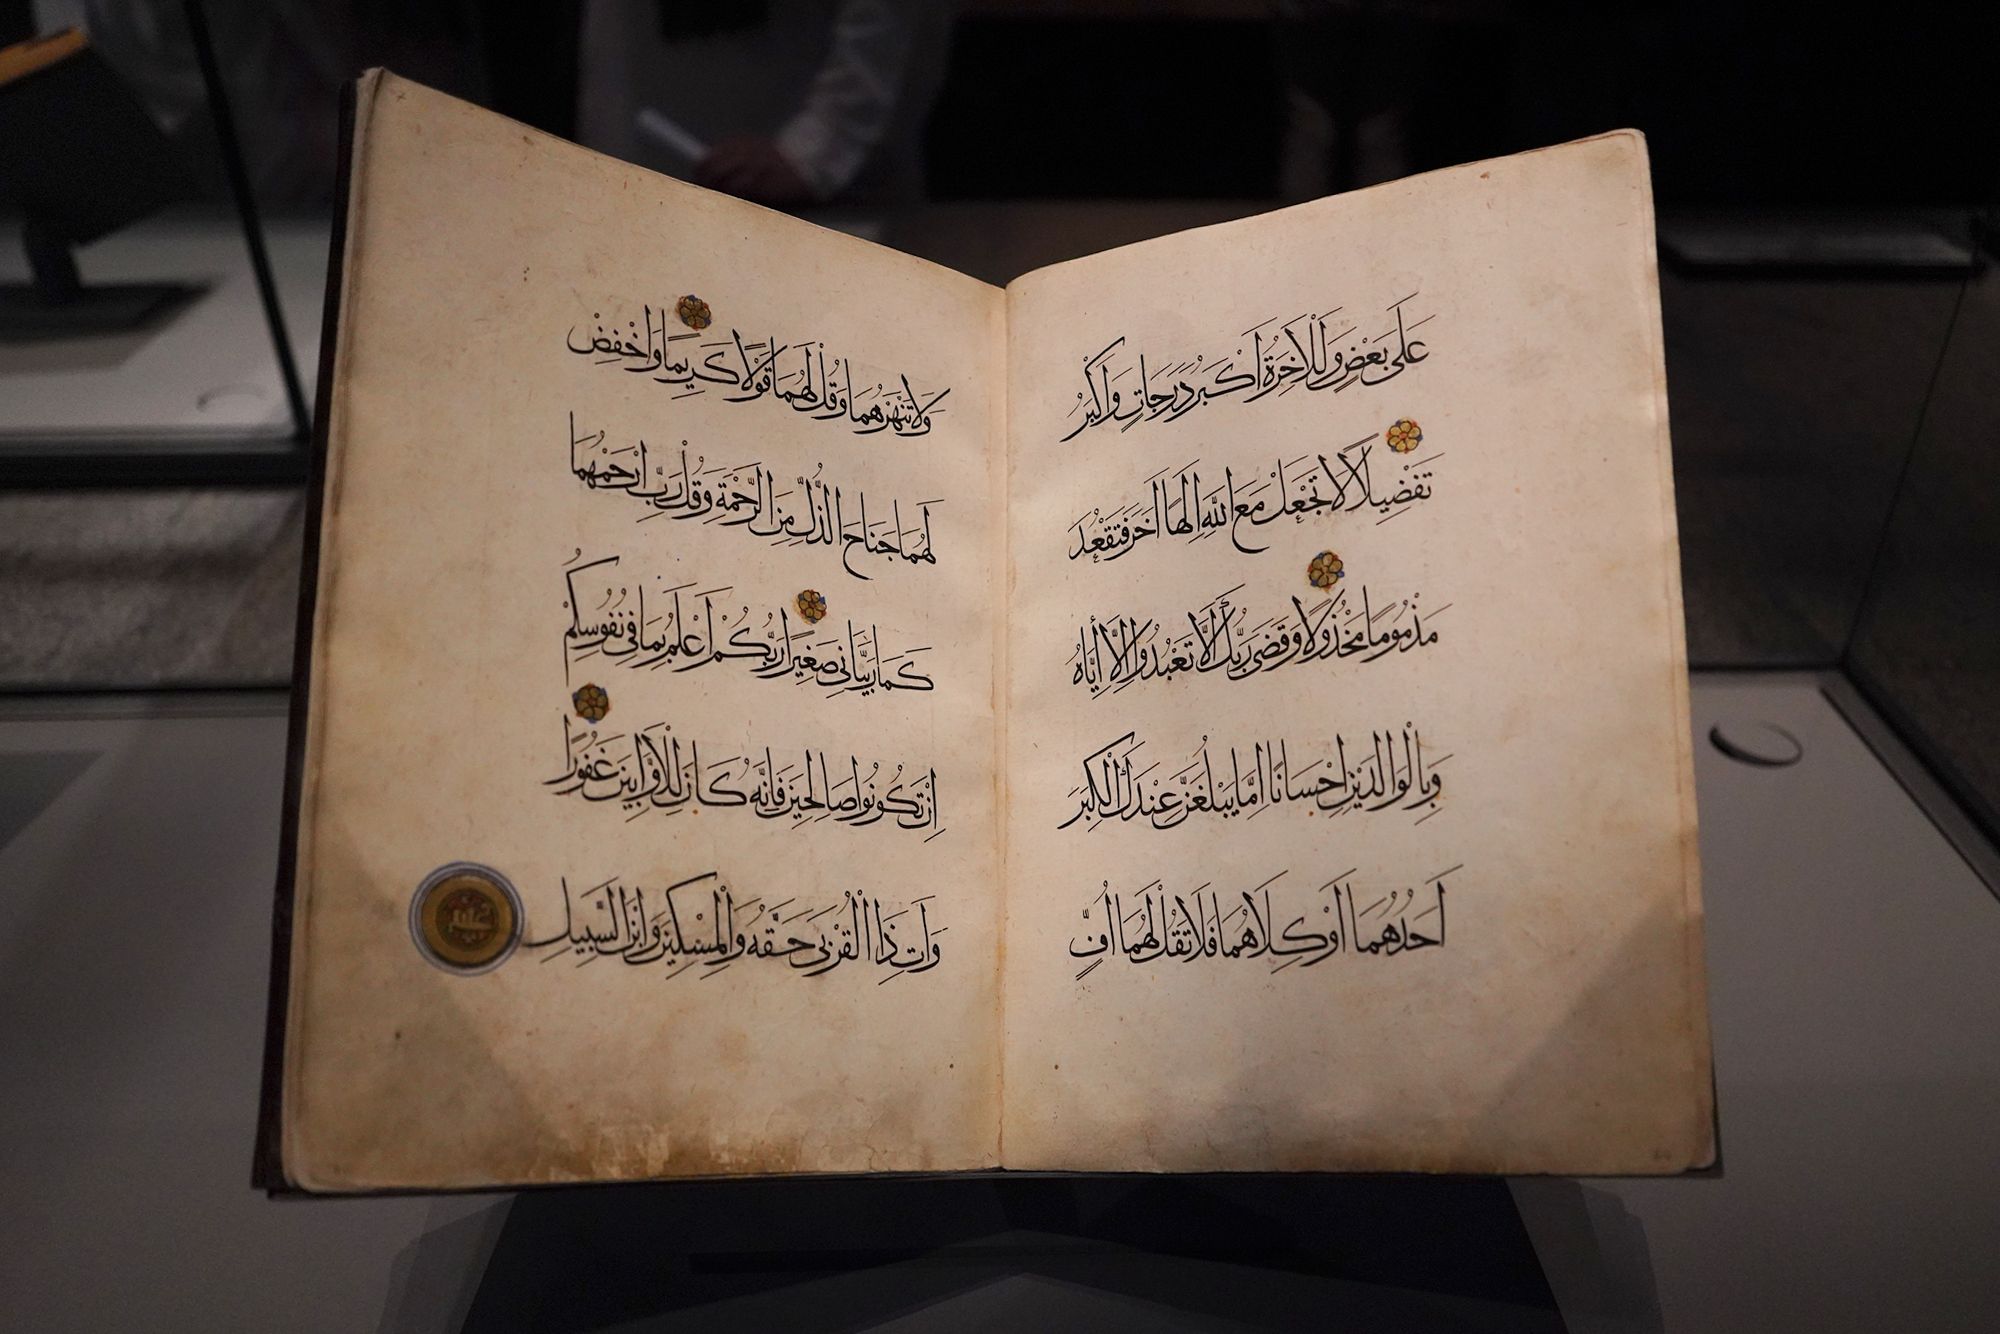 عَلَى بَعْضٍ وَلَلْاٰخِرَةُ اَكْبَرُ دَرَجَاتٍ وَاَكْبَرُ
تَفْضِيلًا لَا تَجْعَلْ مَعَ اللهِ اِلٰهًا اٰخَرَ فَتَقْعُدَ
مَذْمُومًا مَخْذُولًا وَقَضٰى رَبُّكَ اَلَّا تَعْبُدُوا اِلَّا اِيَّاهُ
وَبِالْوَالِدَيْنِ اِحْسَانًا اِمَّا يَبْلُغَنَّ عِنْدَكَ الْكِبَرَ
اَحَدُهُمَا اَوْ كِلَاهُمَا فَلَا تَقُلْ لَهُمَا اُفٍّ
وَلَا تَنْهَرْهُمَا وَقُلْ لَهُمَا قَوْلًا كَرِيمًا وَاخْفِضْ
لَهُمَا جَنَاحَ الذُّلِّ مِنَ الرَّحْمَةِ وَقُلْ رَبِّ ارْحَمْهُمَا
كَمَا رَبَّيَانِي صَغِيرًا رَبُّكُمْ اَعْلَمُ بِمَا فِي نُفُوسِكُمْ
اِنْ تَكُونُوا صَالِحِينَ فَاِنَّهُ كَانَ لِلْاَوَّابِينَ غَفُورًا
وَاٰتِ ذَا الْقُرْبٰى حَقَّهُ وَالْمِسْكِينَ وَابْنَ السَّبِيلِ